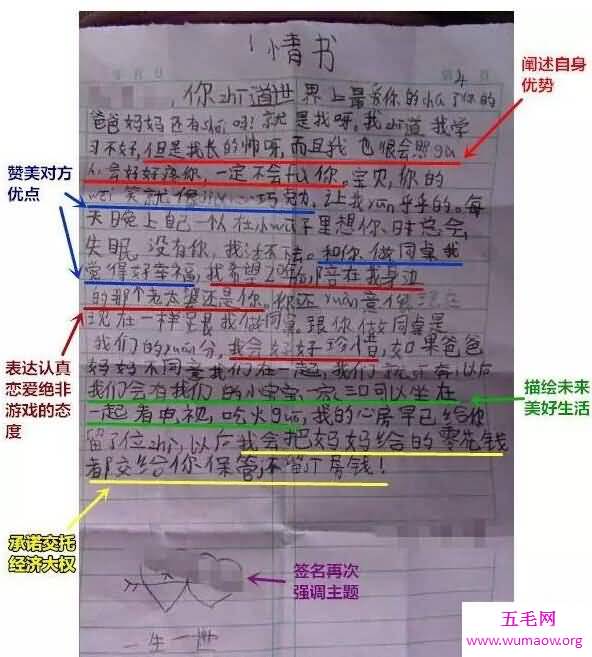 情书
阐述自身
优势
，你zhī道世界上最爱你的chú了你的
爸爸妈妈还有shéi吗！就是我呀，我zhī道我学
习不好，但是我长的帅呀，而且我也很会照gù
会好好疼你，一定不会fù你。宝贝，你的
赞美对方
优点
wēi笑就像巧克力，让我yūn乎乎的。每
天晚上自己一个人在小wū子里想你，时常会
失眠，没有你，我活不下去。和你做同桌我
觉得好幸福，我希望20年后，陪在我身边
的那个老太婆还是你，你还yuàn意像现在
现在一样是我做同桌，跟你做同桌是
我们的yuán分，我会好好珍惜，如果爸爸
妈妈不同意我们在一起，我们就！以后
表达认真
恋爱绝非
游戏的态
度
我们会有我们的小宝宝、一家三口可以坐在
一起看电视，吃火guō，我的心房早已给你
描绘未来
美好生活
留了位zhì，以后我会把妈妈给的零花钱
都交给你保管，不留了房钱！
承诺交托
经济大权
签名再次
强调主题
一生一世
五毛网
www.wumaow.org